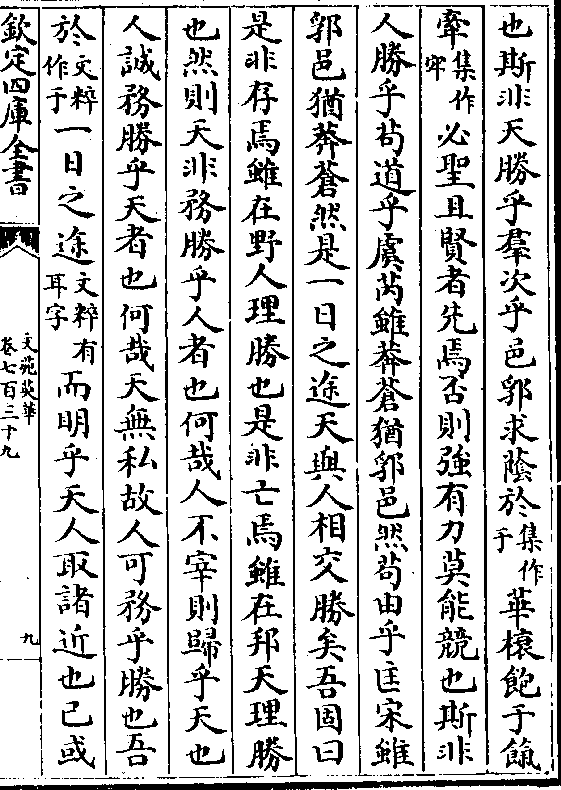 也斯非天勝乎羣次乎邑郛求蔭於集作于華榱飽于餼
牽集作牢必聖且賢者先焉否則強有力莫能競也斯非
人勝乎苟道乎虞芮雖莽蒼猶郛邑然苟由乎匡宋雖
郛邑猶莽蒼然是一日之途天與人相交勝矣吾固曰
是非存焉雖在野人理勝也是非亡焉雖在邦天理勝
也然則天非務勝乎人者也何哉人不宰則歸乎天也
人誠務勝乎天者也何哉天無私故人可務乎勝也吾
於文粹作于一日之途文粹有耳字而明乎天人取諸近也已或
欽定四庫全書
文苑英華
卷七百三十九
九